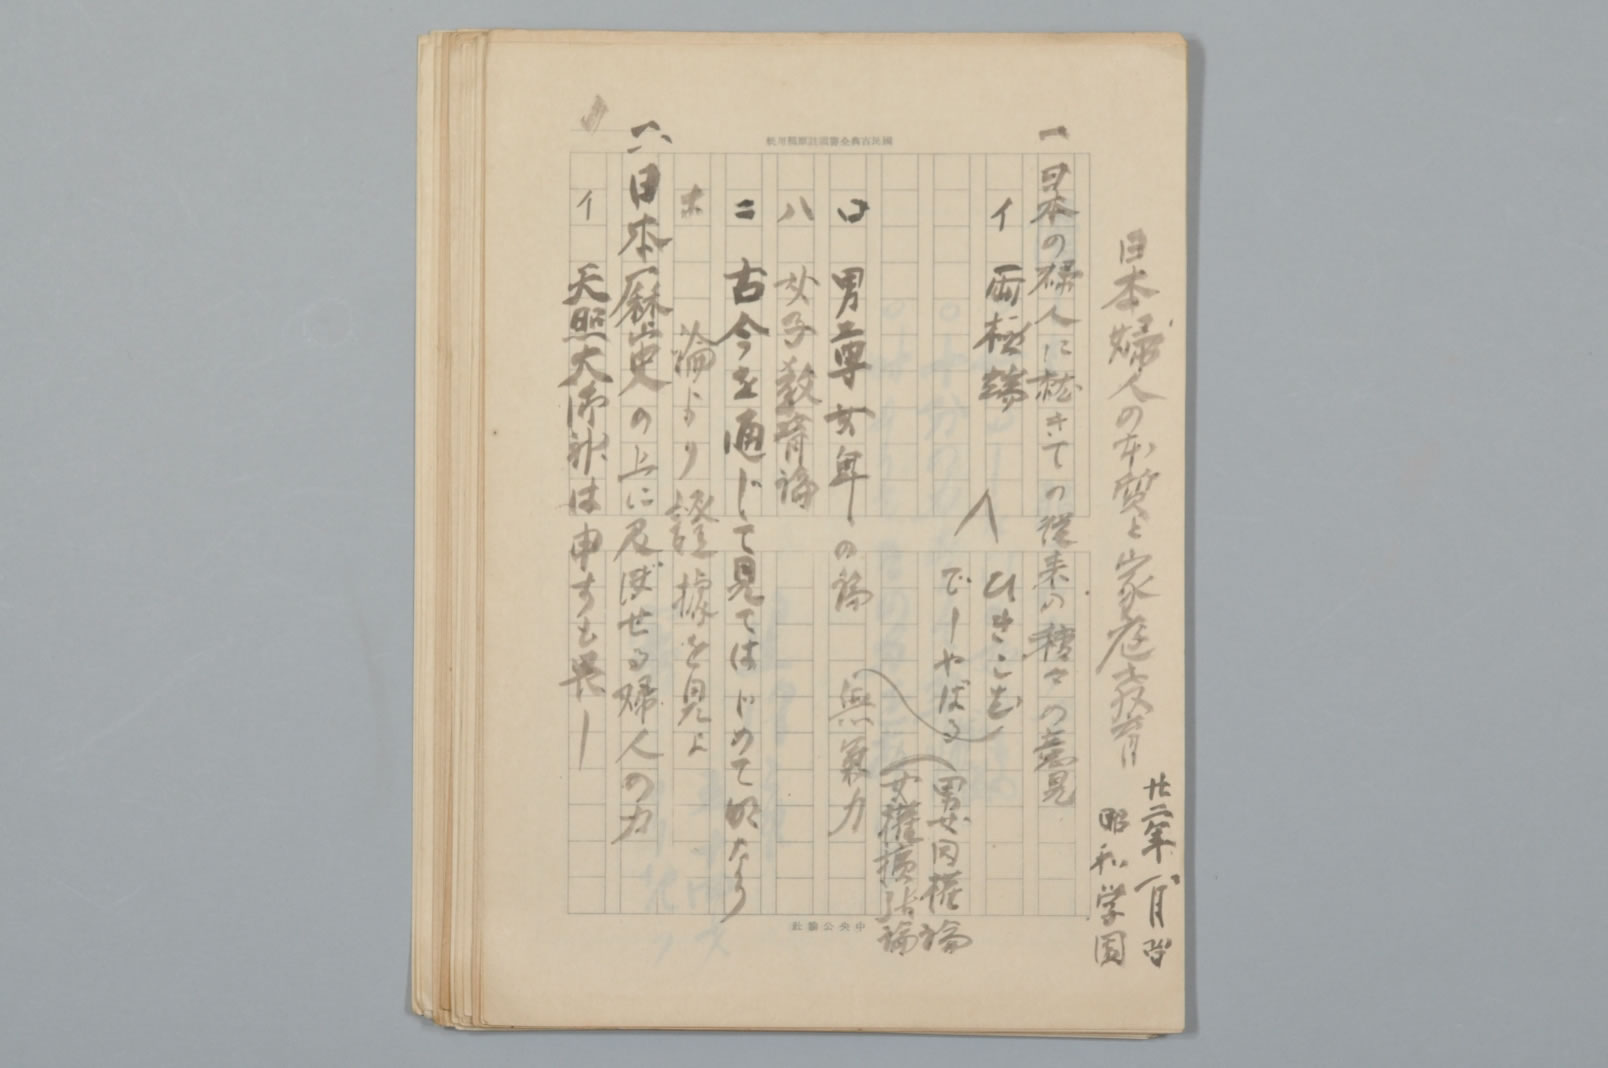 日本婦人の本質と家庭教育
廿二年一月
昭和学園
一 日本の婦人に就きての従来の種々の意見
イ 両極端
ひきこむ
でしやばる
男女同権論
女権擴張論
ロ 男尊女卑の論
無裏力
ハ 女子教育論
ニ 古今を通じて見てはじめて明なり
ホ 論より證據を見よ
二、日本歴史の上に及ぼせる婦人の力
イ 天照大御神は申すも畏し
國民古典全書頭註原稿用紙
中央公論社